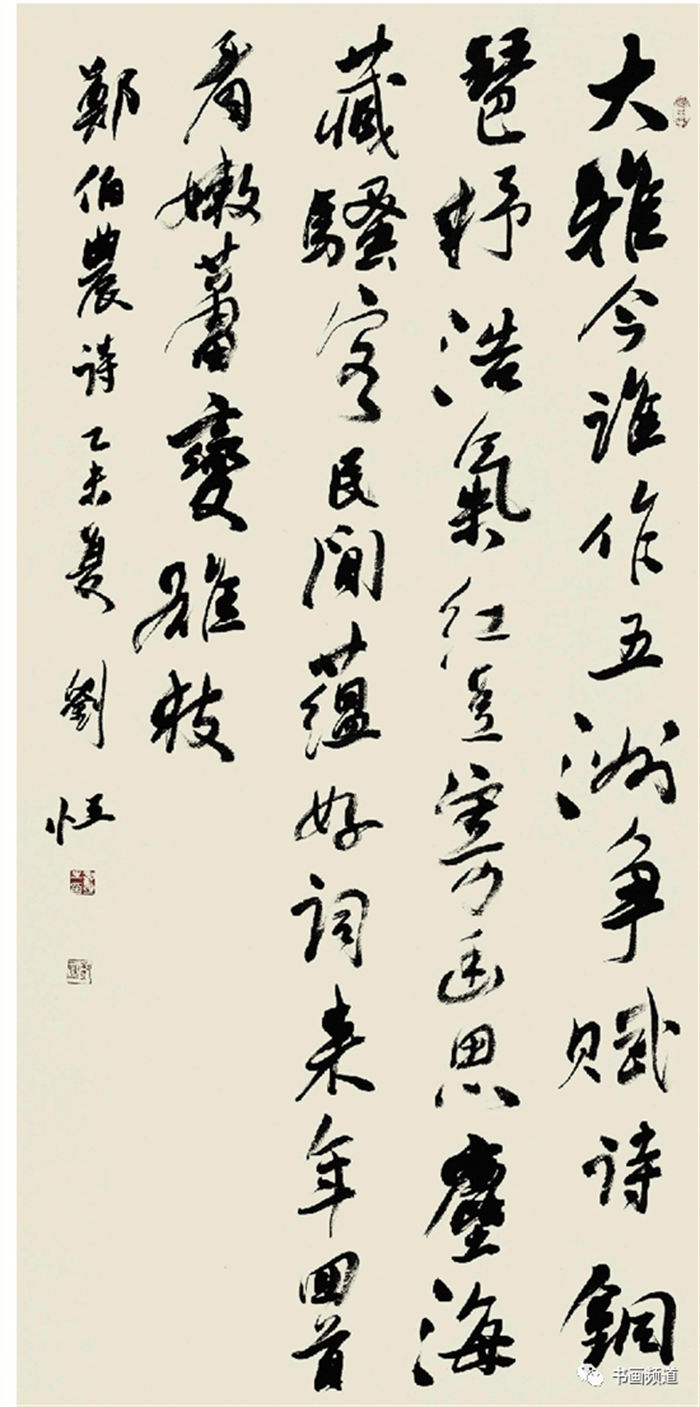 大雅今谁作五洲争赋诗铜
琶抒浩氣红豆寄幽思塵海
藏騷客民间蕴好词来年回首
看嫩蕾變雄枝
鄭伯農诗乙未夏劉恒
书画频道